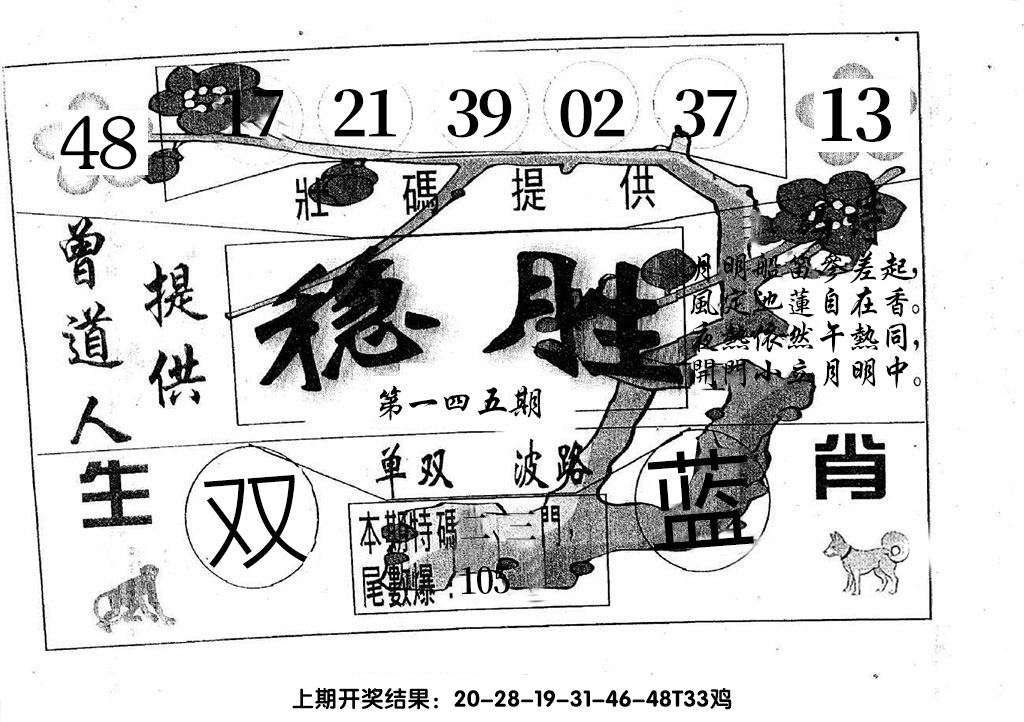 48 17 21 39 02 37 13
壯碼提供
曾道人
提供
稳胜
第一四五期
月明船笛參差起,
風定池蓮自在香。
夜熱依然午熱同,
開門小立月明中。
单双 波路
生肖
双
蓝
本期特碼二、三門,
尾數爆:105
上期开奖结果:20-28-19-31-46-48T33鸡